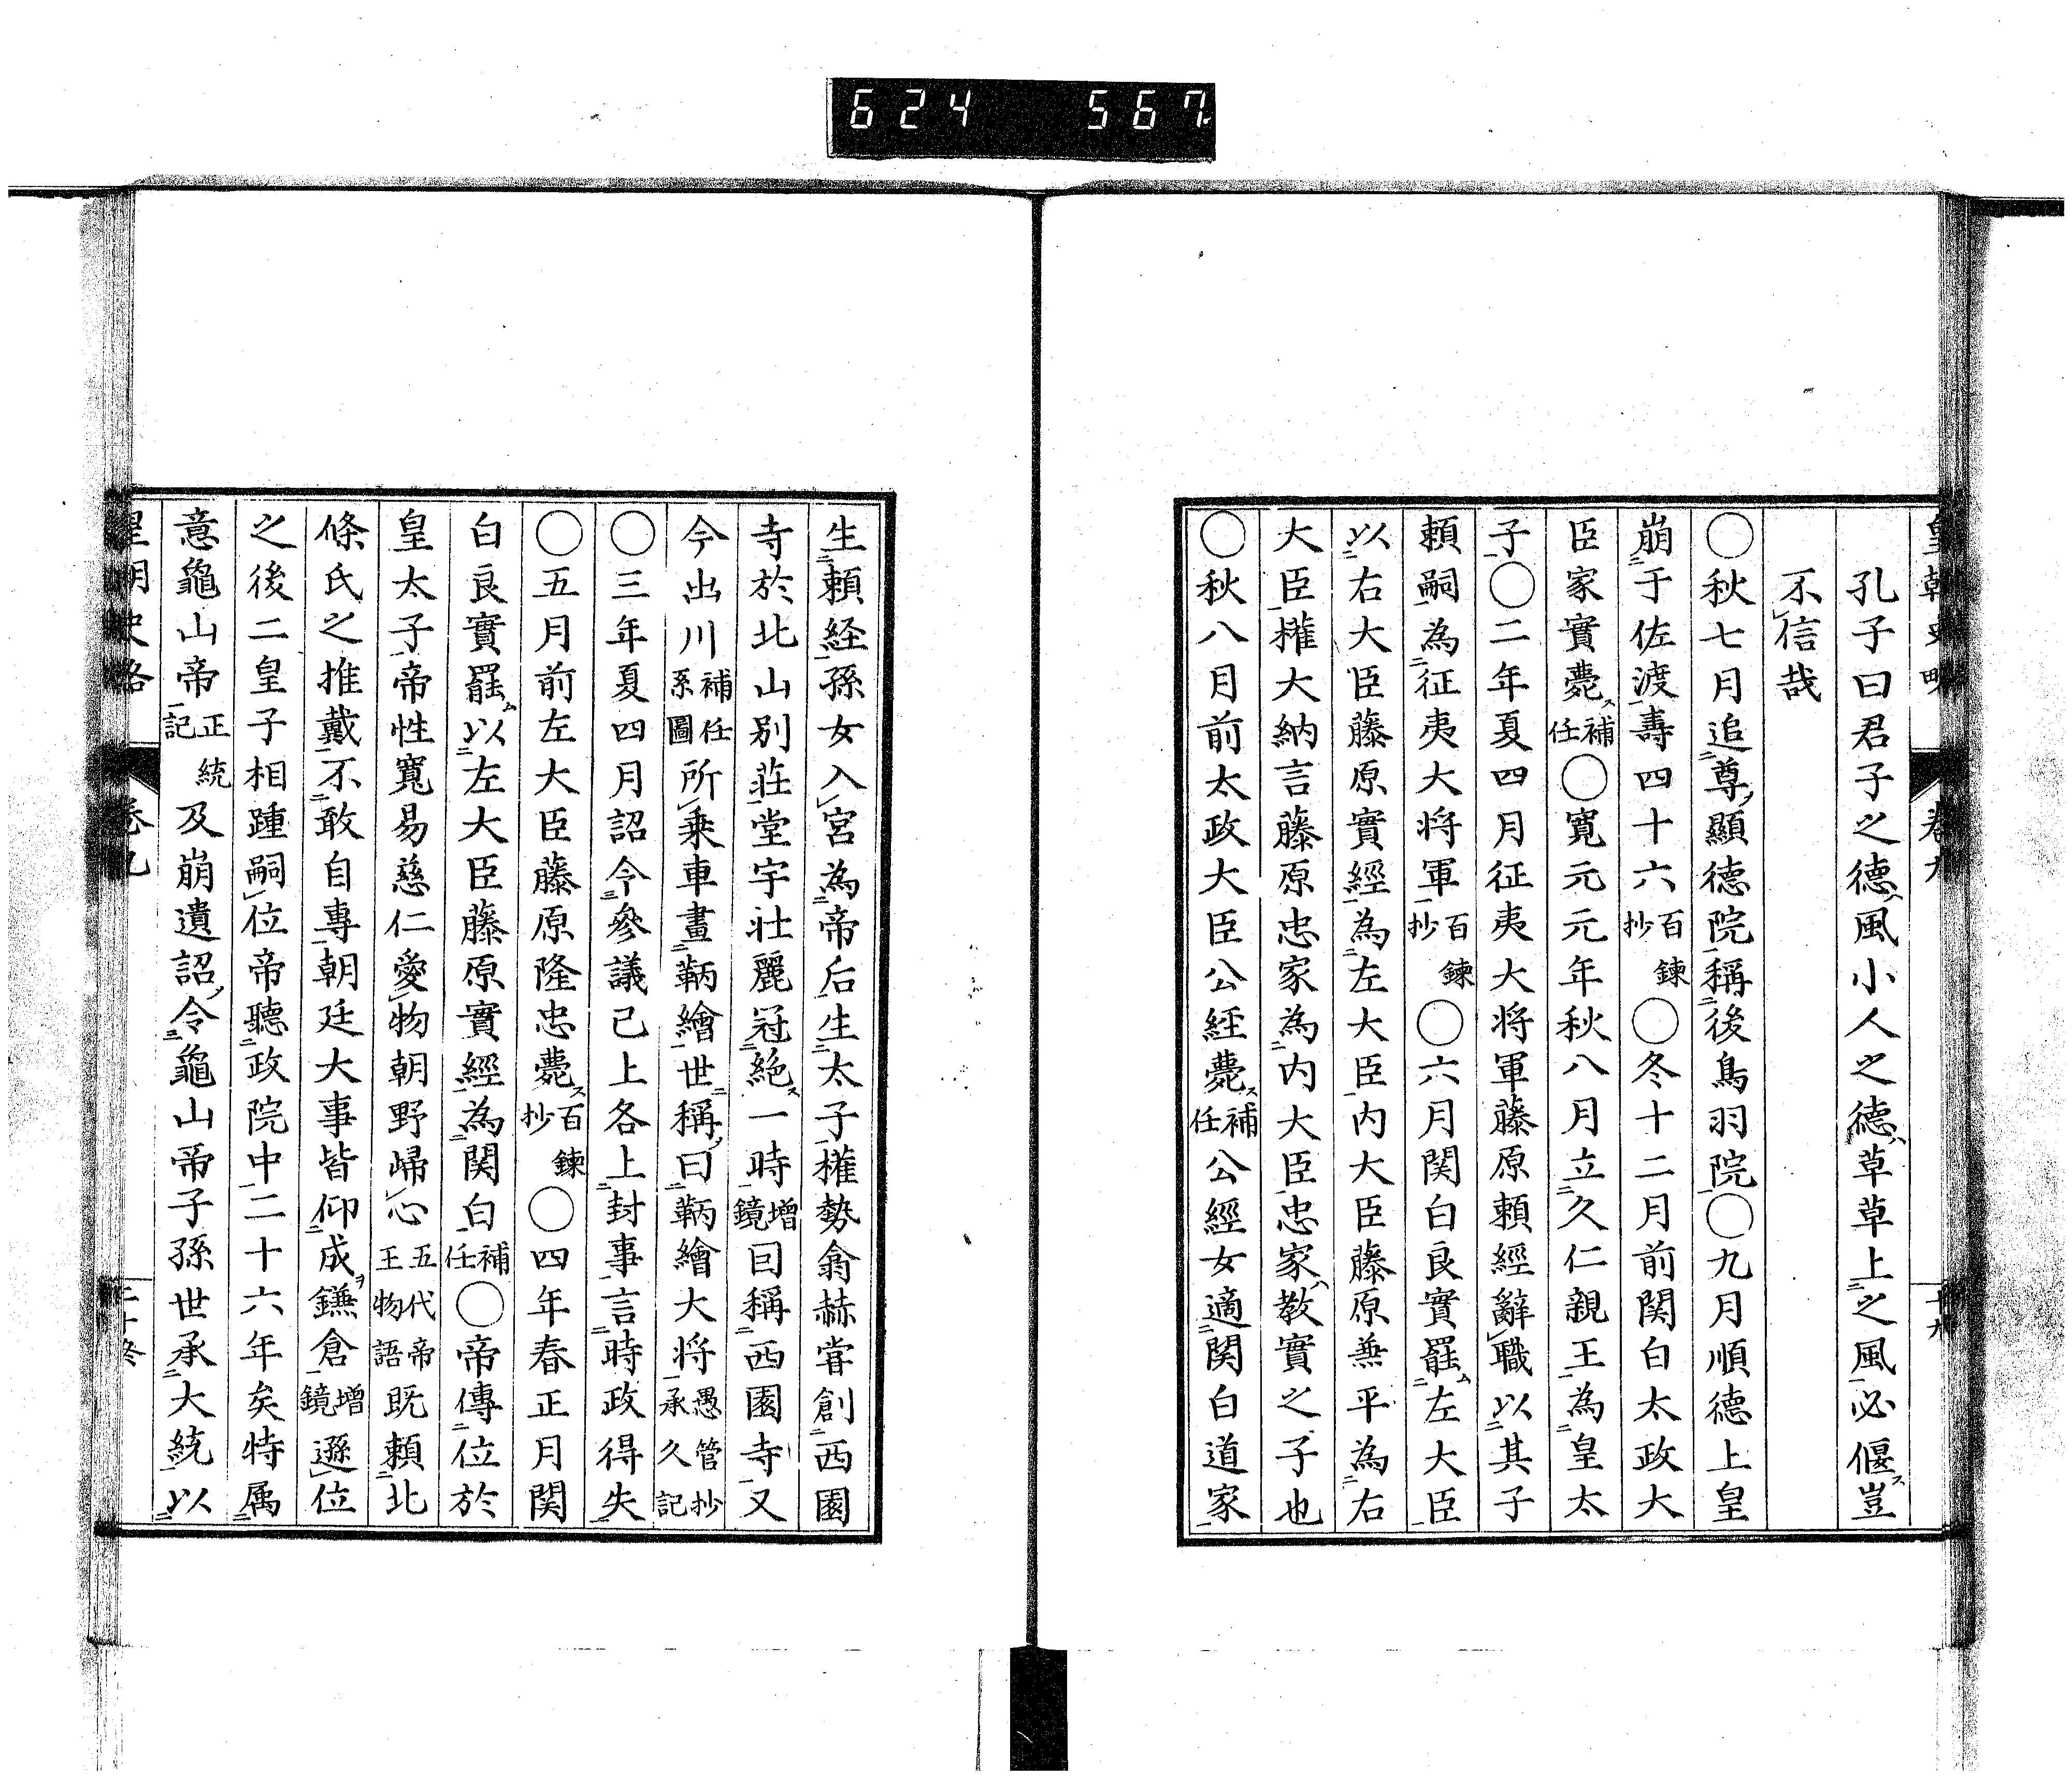 624 567
皇朝史略 卷九 十九
孔子曰君子之德風小人之德草草上之風必偃豈
不信哉
○秋七月追尊顯德院稱後鳥羽院○九月順德上皇
崩于佐渡壽四十六百鍊抄○冬十二月前関白太政大
臣家實薨補任○寬元元年秋八月立久仁親王為皇太
子○二年夏四月征夷大将軍藤原賴經辭職以其子
賴嗣為征夷大将軍百鍊抄○六月関白良實罷左大臣
以右大臣藤原實經為左大臣內大臣藤原兼平為右
大臣權大納言藤原忠家為内大臣忠家教實之子也
○秋八月前太政大臣公経薨補任公經女適関白道家
生賴経孫女入宮為帝后生太子權勢翕赫甞創西園
寺於北山別莊堂宇壮麗冠絶一時增鏡囙稱西園寺又
今出川補任系圖所乗車畫鞆繪世稱曰鞆繪大将愚管抄承久記
○三年夏四月詔令參議已上各上封事言時政得失
○五月前左大臣藤原隆忠薨百鍊抄○四年春正月関
白良實罷以左大臣藤原實經為関白補任○帝傳位於
皇太子帝性寬易慈仁愛物朝野歸心五代帝王物語既賴北
條氏之推戴不敢自專朝廷大事皆仰成鎌倉增鏡遜位
之後二皇子相踵嗣位帝聽政院中二十六年矣特属
意龜山帝正統記及崩遺詔令龜山帝子孫世承大統以
皇朝史略 卷九 二十終